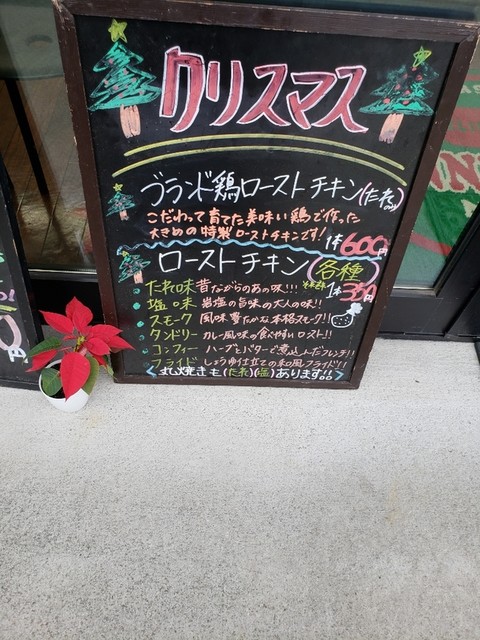 クリスマス
ブランド鶏ローストチキン(たれのみ)
こだわって育てた美味い鶏で作った
大きめの特製ローストチキンです! 1本600円
ローストチキン(各種)
たれ味 昔ながらのあの味!!! 1本350円
塩味 岩塩の旨味の大人の味!!
スモーク 風味豊かな本格スモーク!!
タンドリー カレー風味の食べやすいロースト!!
コンフィー ハーブとバターで煮込んだフレンチ!!
フライド しょうゆ仕立ての和風フライド!!
<丸焼きも(たれ)(塩)あります!!>